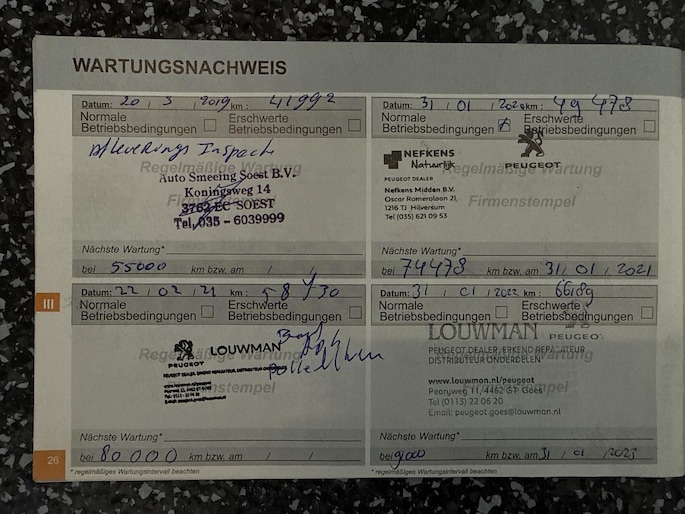 WARTUNGSNACHWEIS
Datum: 20 / 3 / 2019 km: 41992
Normale Erschwerte
Betriebsbedingungen Betriebsbedingungen
Regelmäßige Wartung
Auto Smeeing Soest B.V.
Koningsweg 14
3762 EC SOEST
Tel. 035 - 6039999
Firmenstempel
Nächste Wartung*
bei 55000 km bzw. am / /
Datum: 31 / 01 / 2020 km: 49 478
Normale Erschwerte
Betriebsbedingungen Betriebsbedingungen
NEFKENS
Natuurlijk
PEUGEOT
PEUGEOT DEALER
Regelmäßige Wartung
Nefkens Midden B.V.
Oscar Romerolaan 21,
1216 TJ Hilversum
Tel (035) 621 09 53
Firmenstempel
Nächste Wartung*
bei 74478 km bzw. am 31 / 01 / 2021
III
Datum: 22 / 02 / 21 km: 58 730
Normale Erschwerte
Betriebsbedingungen Betriebsbedingungen
Regelmäßige Wartung
PEUGEOT LOUWMAN
Firmenstempel
Nächste Wartung*
bei 80000 km bzw. am / /
Datum: 31 / 01 / 2022 km: 66189
Normale Erschwerte
Betriebsbedingungen Betriebsbedingungen
LOUWMAN PEUGEOT
Regelmäßige Wartung
PEUGEOT DEALER, ERKEND REPARATEUR
DISTRIBUTEUR ONDERDELEN
www.louwman.nl/peugeot
Pearyweg 11, 4462 GT Goes
Tel (0113) 22 06 20
Email: peugeot.goes@louwman.nl
Firmenstempel
Nächste Wartung*
bei 91000 km bzw. am 31 / 01 / 2023
26
* regelmäßiges Wartungsintervall beachten
* regelmäßiges Wartungsintervall beachten